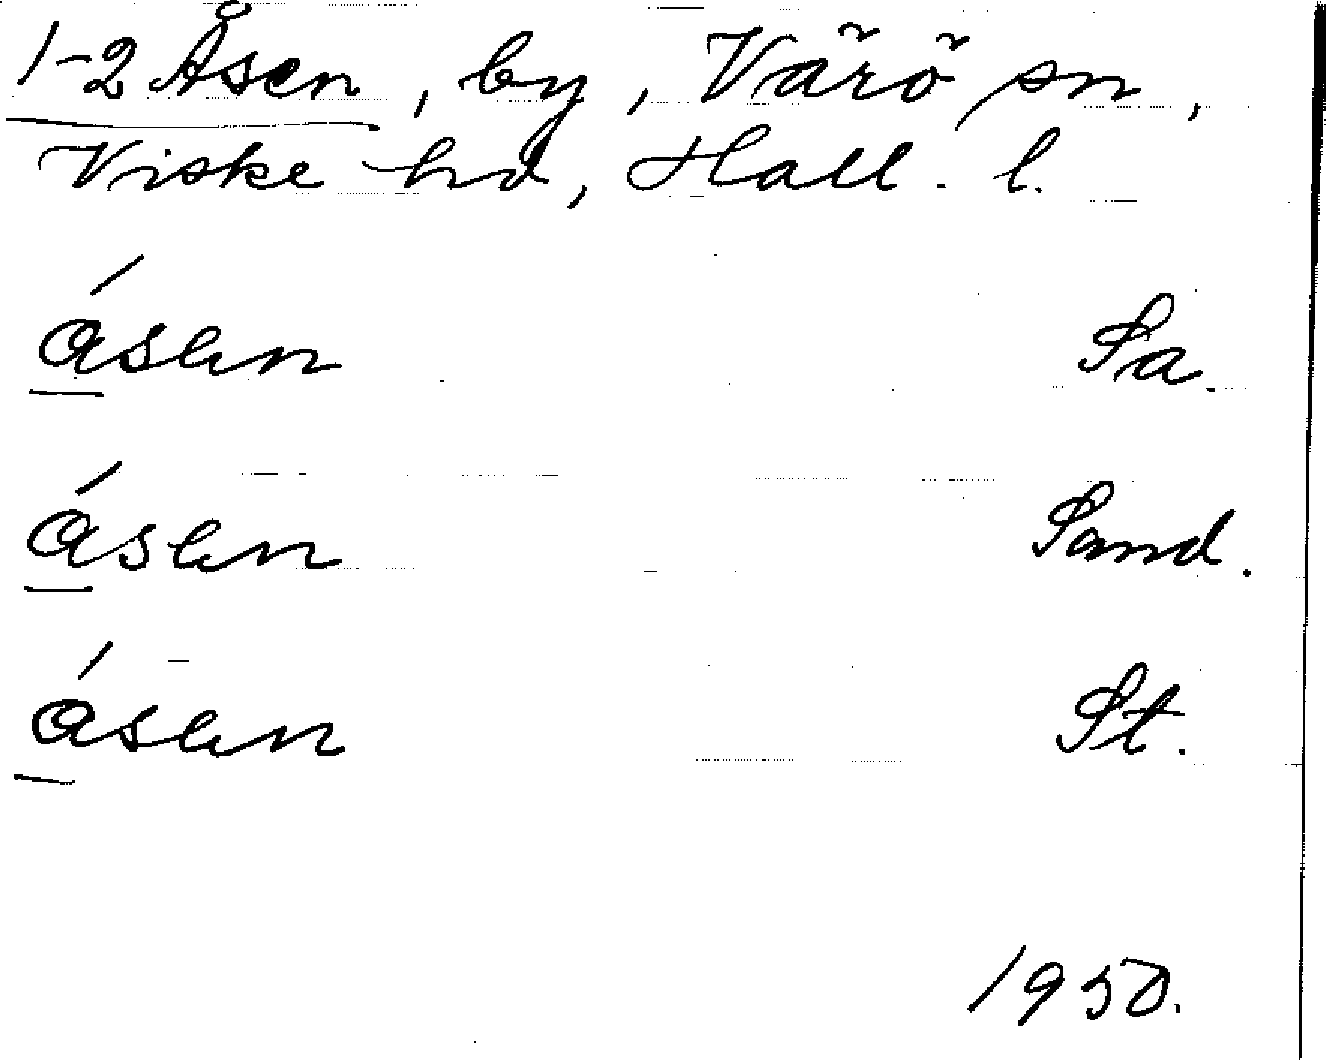 1-2 Åsen, by, Värö sn,
Viske hd, Hall. l.
ásen Sa.
ásen Sand.
ásen St.
1950.